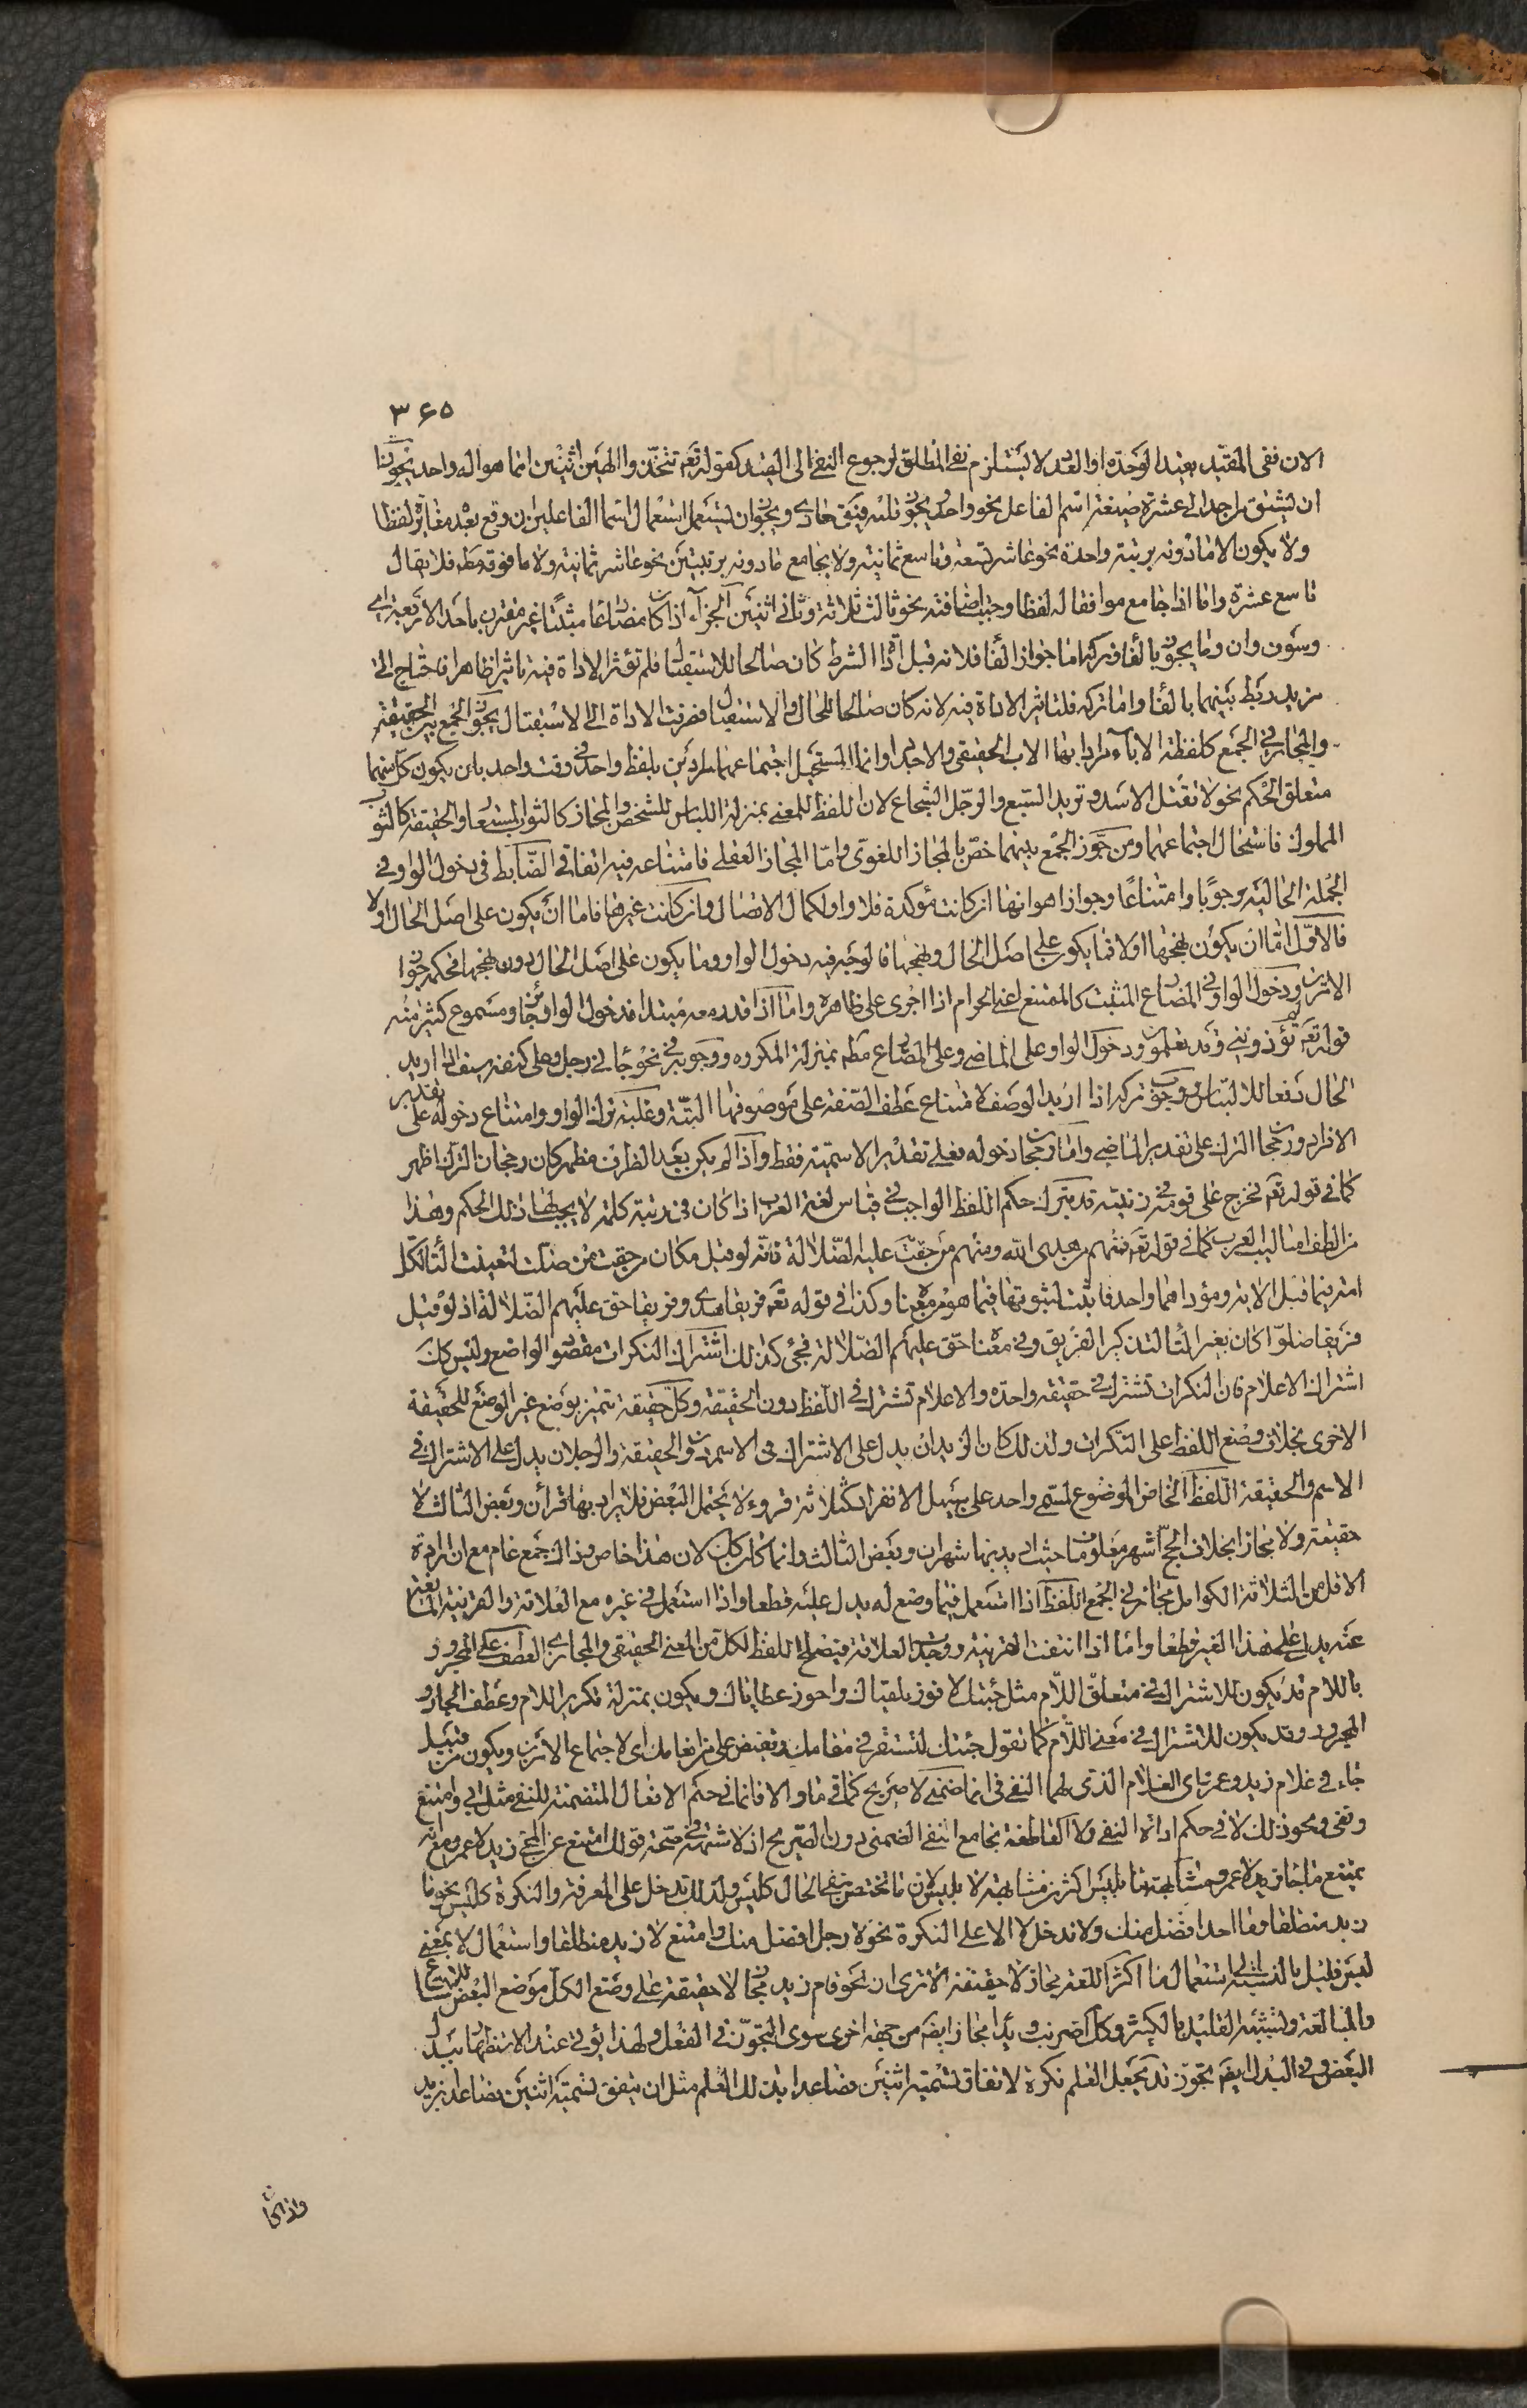 ٣٦٥
الان نفى المقيد بقيد الوحدة او العدد لا يستلزم نفى المطلق لرجوع النفى الى القيد كقوله تعه لا تتخذوا الهين اثنين انما هو اله واحد يجوز
ان يشتق من احد الى عشرة صيغة اسم الفاعل نحو واحد ويجوز قلبه فيق حادى ويجوز ان يستعمل استعمال اسماء الفاعلين ان وقع بعده مغايره لفظا
ولا يكون الا ما دونه برتبة واحدة نحو عاشر تسعة وتاسع ثمانية ولا يجامع ما دونه برتبتين نحو عاشر ثمانية ولا ما فوقه مطه فلا يقال
تاسع عشرة واما اذا جامع موافقا له لفظا وجبت اضافته نحو ثالث ثلاثة وثانى اثنين الجزاء اذا كان مضارعا مثبتا غير مقترن باحد الاربعة اى
وسوف وان وما يجوز بالفاء وتركها اما جواز الفاء فلانه قبل اداة الشرط كان صالحا للاستقبال فلم تؤثر الاداة فيه تاثيرا ظاهرا فاحتاج الى
مزيد ربط بينهما بالفاء واما تركه فلتاثير الاداة فيه لانه كان صالحا للحال والاستقبال فصرفته الاداة الى الاستقبال يجوز الجمع بين الحقيقة
والمجاز فى الجمع كلفظة الاباء يراد بها الاب الحقيقى والاجداد وانما المستحيل اجتماعهما مرادين بلفظ واحد فى وقت واحد بان يكون كل منهما
متعلق الحكم نحو لا تقتل الاسد وتريد السبع والرجل الشجاع لان اللفظ للمعنى بمنزلة اللباس للشخص والمجاز كالثوب المستعار والحقيقة كالثوب
المملوك فاستحال اجتماعهما ومن جوز الجمع بينهما خص بالمجاز اللغوى واما المجاز العقلى فامتناعه فيه اتفاقى الضابط فى دخول الواو فى
الجملة الحالية وجوبا وامتناعا وجوازا هو انها ان كانت مؤكدة فلا واو لكمال الاتصال وان كانت غيرها فاما ان يكون على اصل الحال اولا
فالاول اما ان يكون بنهجها اولا فما يكون على اصل الحال ونهجها فالوجه فيه دخول الواو وما يكون على اصل الحال دون نهجها فحكمه جواز
الامرين ودخول الواو فى المضارع المثبت كالممتنع اعنى الحرام اذا اجرى على ظاهره واما اذا قدر معه مبتدا فدخول الواو جائز ومسموع كثير منه
قوله تعه لم تؤذوننى وقد تعلمون ودخول الواو على الماضى وعلى المضارع مطه بمنزلة المكروه ووجوبه فى نحو جائنى رجل وعلى كتفه سيف اذا اريد
الحال دفعا للالتباس ووجوب تركه اذا اريد الوصف لامتناع عطف الصفة على موصوفها البتة وغلبة ترك الواو وامتناع دخوله على تقدير
الافراد ورجحان الترك على تقدير الماضى واما رجحان دخوله فعلى تقدير الاسمية فقط واذا لم يكن بعد الظرف مظهر كان رجحان الترك اظهر
كما فى قوله تعه فخرج على قومه فى زينته قد يترك حكم اللفظ الواجب فى قياس لغة العرب اذا كان فى رتبة كلمة لا يجب لها ذلك الحكم وهذا
من الطف اساليب العرب كما فى قوله تعه فمنهم من هدى الله ومنهم من حقت عليه الضلالة فانه لو قيل مكان من حقت من ضلت لتعينت التاء لكل
امر فيما قبل الاية ومؤداهما واحد فاثبت لثبوتها فيما هو من معناه وكذا فى قوله تعه فريقا هدى وفريقا حق عليهم الضلالة اذ لو قيل
فريقا ضلوا كان بغير التاء لتذكير الفريق وفى معناه حق عليهم الضلالة فجئ كذلك اشتراك النكرات مقصود الواضع وليس كك
اشتراك الاعلام فان النكرات تشترك فى حقيقة واحدة والاعلام تشترك فى اللفظ دون الحقيقة وكل حقيقة تتميز بوضع غير الوضع للحقيقة
الاخرى بخلاف وضع اللفظ على النكرات ولذلك كان الزيدان يدل على الاشتراك فى الاسم دون الحقيقة والرجلان يدل على الاشتراك فى
الاسم والحقيقة اللفظ الخاص الموضوع لمسمى واحد على سبيل الانفراد كثلاثة قروء لا يحتمل البعض فلا يراد بها قرأن وبعض الثالث لا
حقيقة ولا مجازا بخلاف الحج اشهر معلومات حيث اريد بها شهران وبعض الثالث وانما كان كك لان هذا خاص وذاك جمع عام مع ان ارادة
الاقل من الثلاثة الكوامل مجاز فى الجمع اللفظ اذا استعمل فيما وضع له يدل عليه قطعا واذا استعمل فى غيره مع العلاقة والقرينة المانعة
عنه يدل على هذا الغير قطعا واما اذا انتفت القرينة ووجدت العلاقة فيصلح اللفظ لكل من المعنى الحقيقى والمجازى العطف على المجرور
باللام قد يكون للاشتراك فى متعلق اللام مثل جئتك لافوز بلقياك واحوز عطاياك ويكون بمنزلة تكرير اللام وعطف الجار و
المجرور وقد يكون للاشتراك فى معنى اللام كما تقول جئتك لتستقر فى مقامك وتفيض على من انعامك اى لاجتماع الامرين ويكون من قبيل
جاء فى غلام زيد وعمرو اى الغلام الذى لهما النفى فى انما ضمنى لا صريح كما فى ما والا فانما فى حكم الافعال المتضمنة للنفى مثل ابى وامتنع
ونفى ونحو ذلك لا فى حكم اداة النفى ولا العاطفة تجامع النفى الضمنى دون الصريح اذ لا شبهة فى صحة قولك امتنع عن المجئ زيد لا عمرو مع انه
يمتنع ما جاء زيد لا عمرو مشابهة ما بليس اكثر من مشابهة لا بليس لان ما تختص بنفى الحال كليس ولذلك تدخل على المعرفة والنكرة كليس نحو ما
زيد منطلقا وما احد افضل منك ولا تدخل لا الا على النكرة نحو لا رجل افضل منك وامتنع لا زيد منطلقا واستعمال لا بمعنى
ليس قليل بالنسبة الى استعمال ما اكثر اللغة مجاز لا حقيقة الا ترى ان نحو قام زيد مجاز لا حقيقة على وضع الكل موضع البعض للاتساع
والمبالغة وتشبيه القليل بالكثير وكك ضربت زيدا مجاز ايضه من جهة اخرى سوى التجوز فى الفعل ولهذا يؤتى عند الاستظهار ببدل
البعض وفى البدل ايضه تجوز قد يجعل العلم نكرة لاتفاق تسمية اثنين فصاعدا بذلك العلم مثل ان يتفق تسمية اثنين فصاعدا بزيد
واذا كا